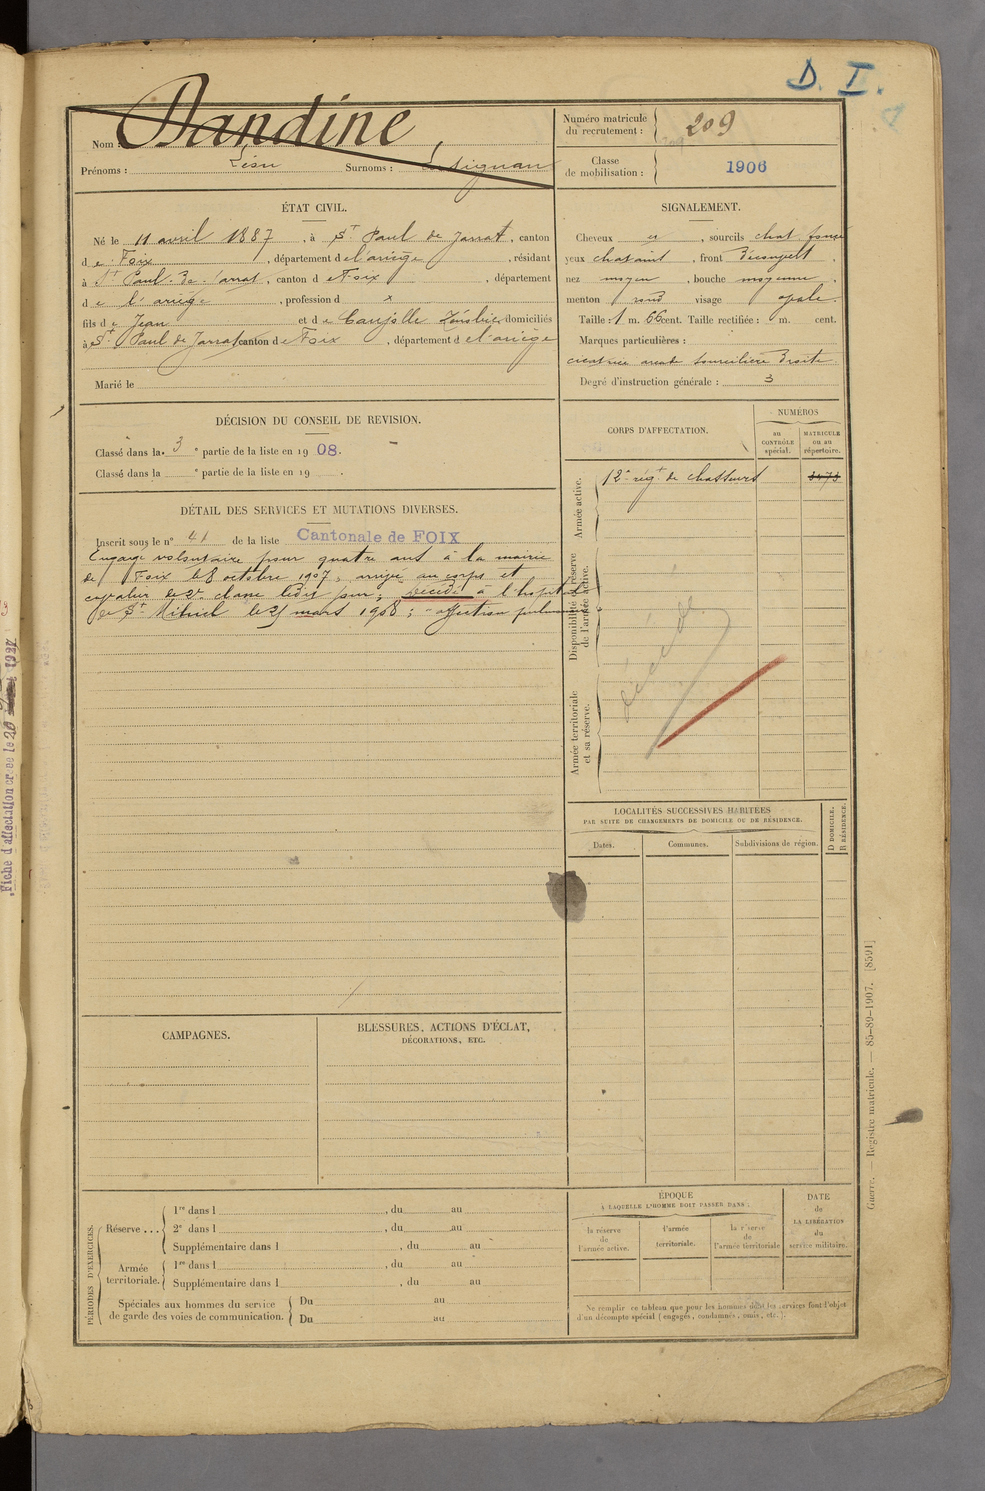 D. I.
Nom : Dandine
Prénoms : Léon Surnoms :
Numéro matricule
du recrutement : 209
Classe
de mobilisation : 1906
ÉTAT CIVIL.
Né le 11 avril 1887, à St Paul de Jarrat, canton
de Foix, département de l'ariège, résidant
à St Paul de Jarrat, canton de Foix, département
de l'ariège, profession d x
fils de Jean et de Caujolle domiciliés
à St Paul de Jarrat canton de Foix, département de l'ariège
Marié le
SIGNALEMENT.
Cheveux et, sourcils chat foncé
yeux chatains, front découvert,
nez moyen, bouche moyenne,
menton rond visage ovale.
Taille : 1 m. 66 cent. Taille rectifiée : m. cent.
Marques particulières :
cicatrice arcade sourcilière droite.
Degré d'instruction générale : 3
DÉCISION DU CONSEIL DE REVISION.
Classé dans la 3e partie de la liste en 1908.
Classé dans la e partie de la liste en 19 .
DÉTAIL DES SERVICES ET MUTATIONS DIVERSES.
Inscrit sous le n° 41 de la liste Cantonale de FOIX
Engagé volontaire pour quatre ans à la mairie
de Foix le 8 octobre 1907, arrivé au corps et
cavalier de 2e classe ledit jour; décédé à l'hopital
de St Mihiel le 25 mars 1908; affection
CORPS D'AFFECTATION.
NUMÉROS
au
CONTRÔLE
spécial.
MATRICULE
ou au
répertoire.
Armée active.
12e régt de chasseurs 3473
Disponibilité et réserve
de l'armée active.
décédé
Armée territoriale
et sa réserve.
LOCALITÉS SUCCESSIVES HABITÉES
PAR SUITE DE CHANGEMENTS DE DOMICILE OU DE RÉSIDENCE.
Dates.
Communes.
Subdivisions de région.
D DOMICILE.
R RÉSIDENCE.
CAMPAGNES.
BLESSURES, ACTIONS D'ÉCLAT,
DÉCORATIONS, ETC.
PÉRIODES D'EXERCICES.
Réserve ...
1re dans l , du au
2e dans l , du au
Supplémentaire dans l , du au
Armée
territoriale.
1re dans l , du au
Supplémentaire dans l , du au
Spéciales aux hommes du service
de garde des voies de communication.
Du au
Du au
ÉPOQUE
À LAQUELLE L'HOMME DOIT PASSER DANS :
la réserve
de
l'armée active.
l'armée
territoriale.
la réserve
de
l'armée territoriale
DATE
de
LA LIBÉRATION
du
service militaire.
Ne remplir ce tableau que pour les hommes dont les services font l'objet
d'un décompte spécial (engagés, condamnés, omis, etc.).
Guerre. — Registre matricule. — 85-89-1907. [8591]
Fiche d'affectation créée le 20 1927